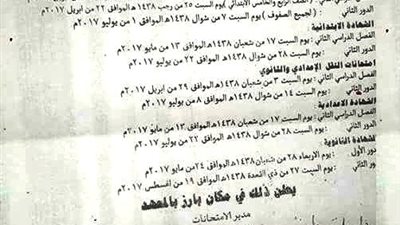 الصف الرابع والخامس الابتدائي ) يوم السبت ٢٥ من رجب ١٤٣٨هـ الموافق ٢٢ من ابريل ٢٠١٧م
الدور الثاني : ( لجميع الصفوف ) يوم السبت ٧ من شوال ١٤٣٨هـ الموافق ١ من يوليو ٢٠١٧م
الشهادة الابتدائية
الفصل الدراسي الثاني : يوم السبت ١٧ من شعبان ١٤٣٨هـ الموافق ١٣ من مايو ٢٠١٧م
الدور الثاني : يوم السبت ٢٨ من شوال ١٤٣٨هـ الموافق ٢٢ من يوليو ٢٠١٧م
امتحانات النقل الإعدادي والثانوي
الفصل الدراسي الثاني : يوم السبت ٣ من شعبان ١٤٣٨هـ الموافق ٢٩ من ابريل ٢٠١٧م
الدور الثاني : يوم السبت ١٤ من شوال ١٤٣٨هـ الموافق ٨ من يوليو ٢٠١٧م
الشهادة الإعدادية
الفصل الدراسي الثاني : يوم السبت ١٧ من شعبان ١٤٣٨هـ الموافق ١٣ من مايو ٢٠١٧م
الدور الثاني : يوم السبت ٢٨ من شوال ١٤٣٨هـ الموافق ٢٢ من يوليو ٢٠١٧م
الشهادة الثانوية
دور الأول : يوم الاربعاء ٢٨ من شعبان ١٤٣٨هـ الموافق ٢٤ من مايو ٢٠١٧م
دور الثاني : يوم السبت ٢٧ من ذي القعدة ١٤٣٨هـ الموافق ١٩ من اغسطس ٢٠١٧م
يعلن ذلك في مكان بارز بالمعهد
مدير الامتحانات